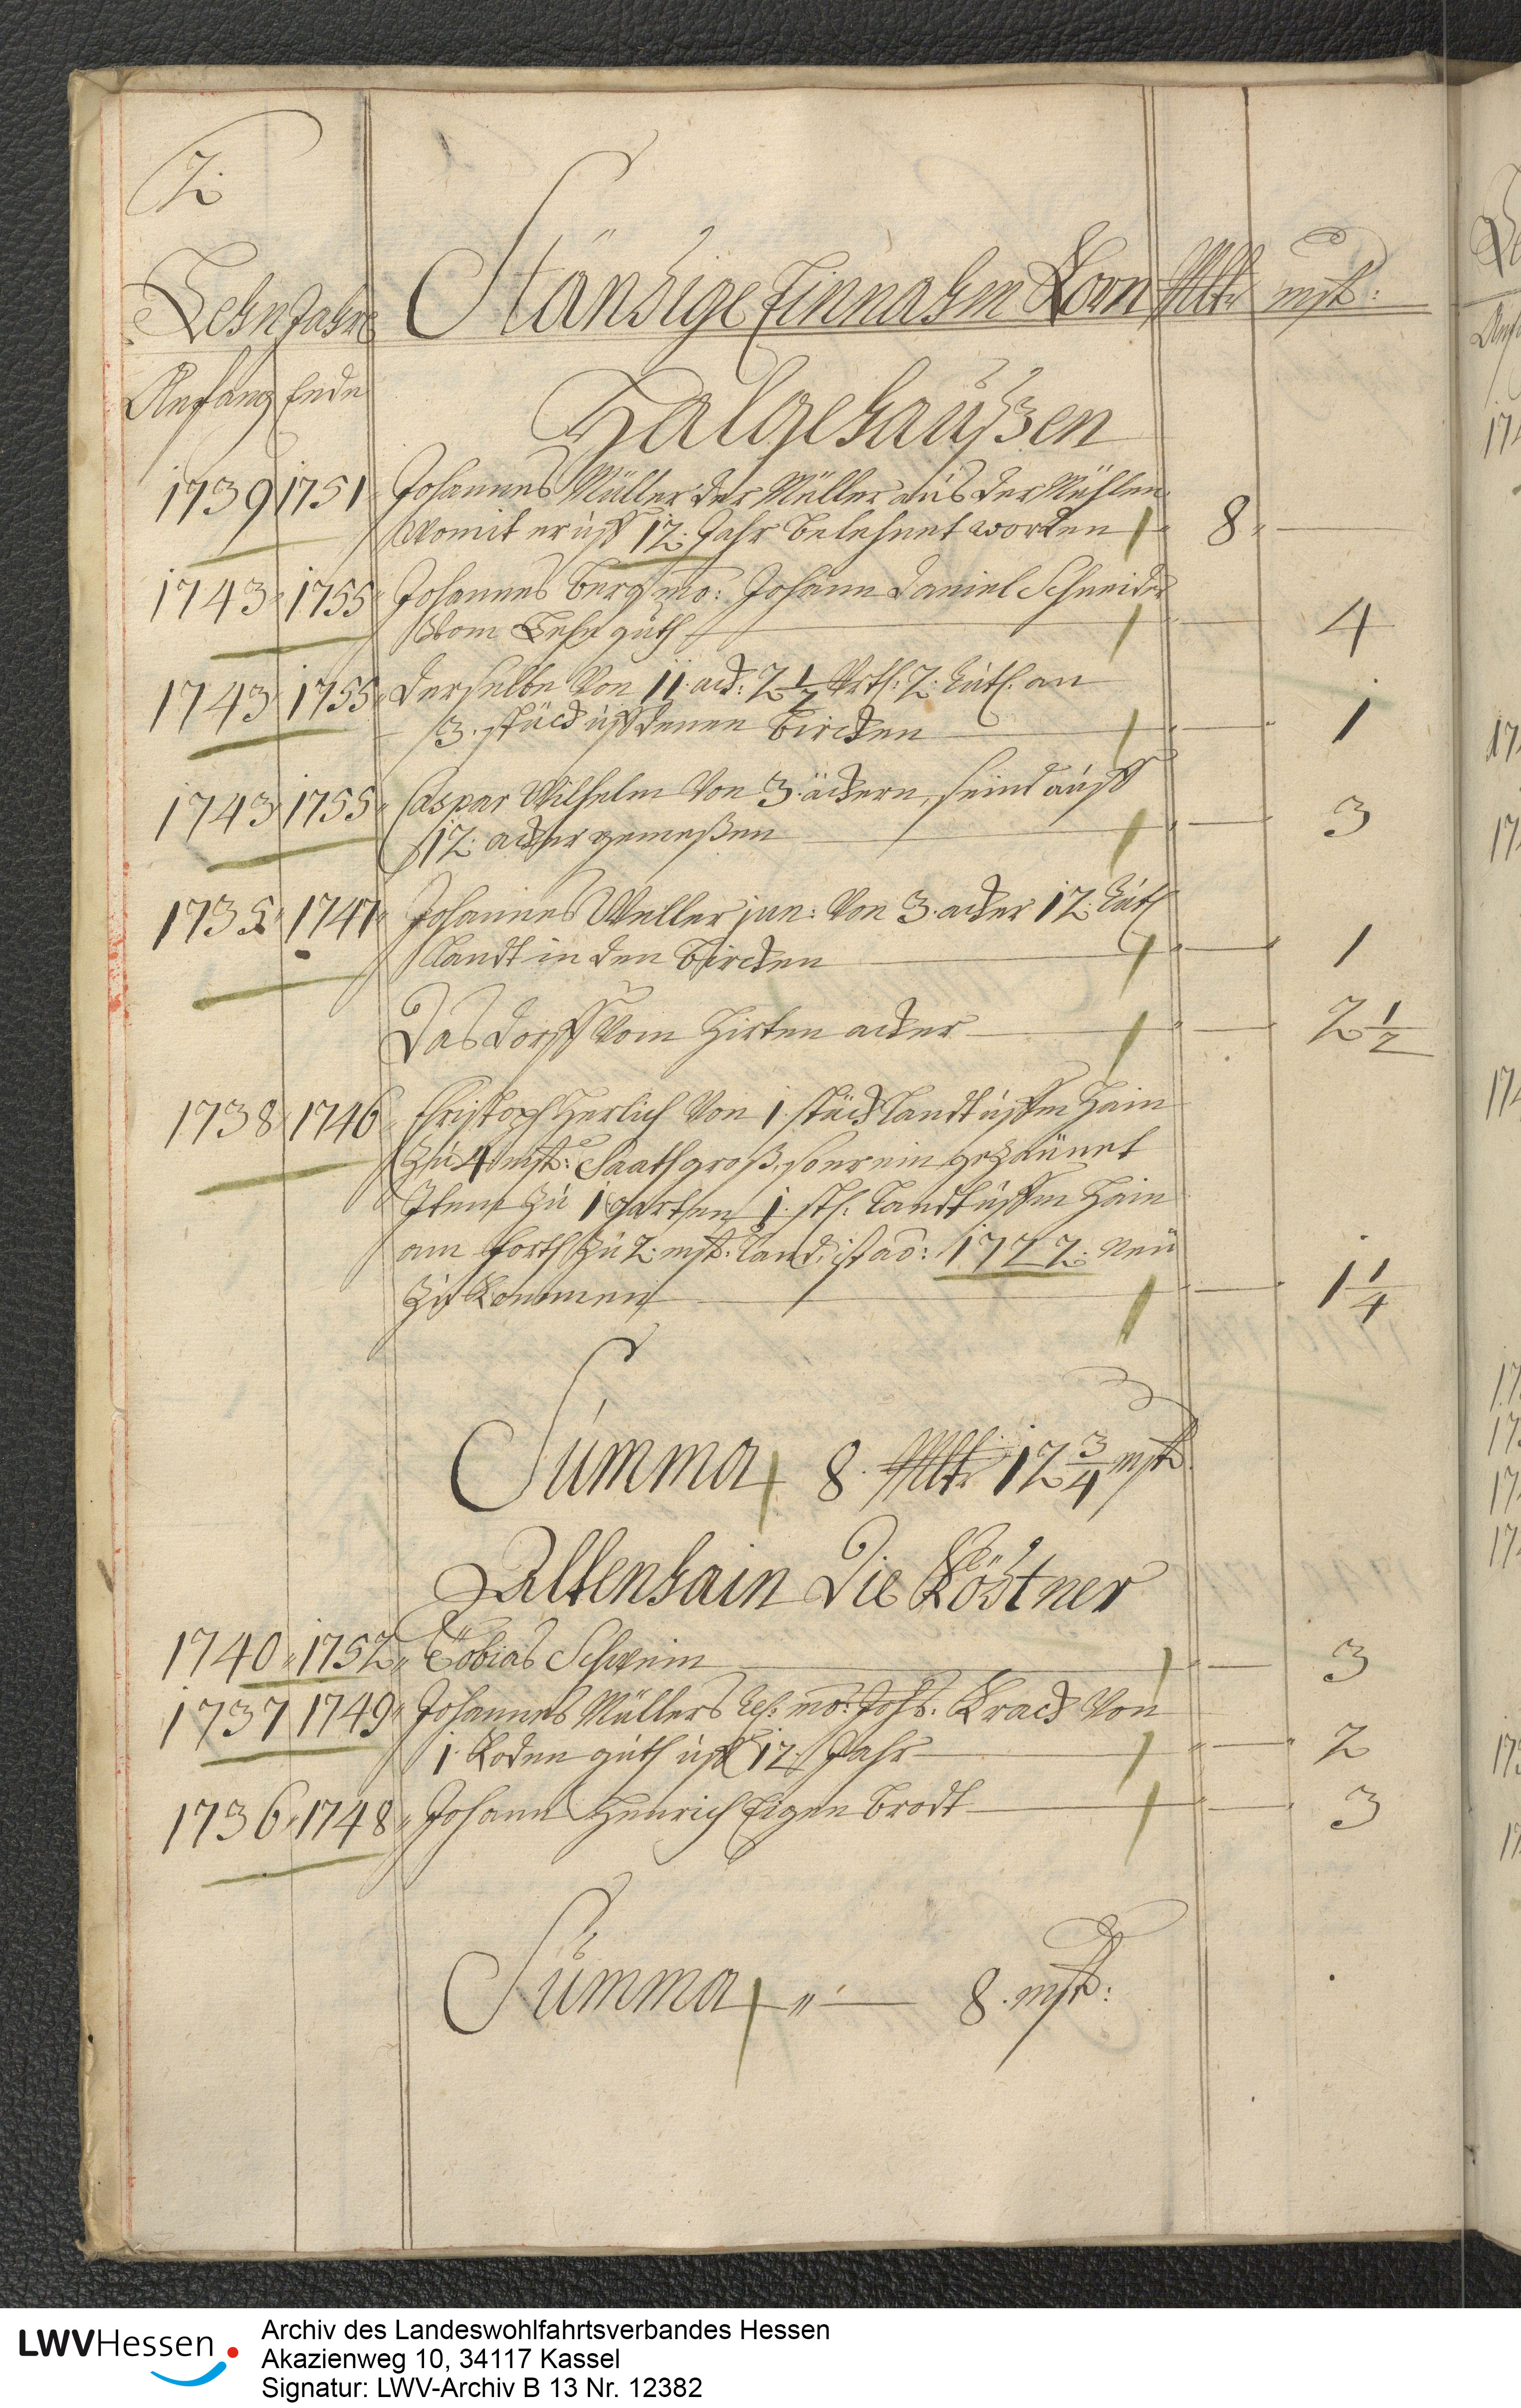 2.
Lehn Jahre Ständige Einnahm Korn Mltr mst:
Anfang Ende
Halgehaußen
1739 1751 Johannes Müller der Müller aus der Mühlen
womit er uff 12. Jahr belehnet worden 8
1743 1755 Johannes Berg mo: Johann Daniel Schneider
Vom Lehn guth 4
1743 1755 derselbe Von 11 ack: 2 1/2 Vrtl: 2. Ruth. an
3. stück uff denen Bircken 1
1743 1755 Caspar Wilhelm Von 3. äckern, seind auff
12. acker gemeßen 3
1735 1747 Johannes Weller jun: Von 3. acker 12. Ruth
Landt in den Bircken 1
Das dorff Vom Hirten acker 2 1/2
1738 1746 Christoph Herlich Von 1. stück Landt uffm Hain
zu 4 mst: Saath groß, so er ein gezäunet
Item zu 1 garthen 1. stk. Landt uffm Hain
am forth zu 2. mst: Land, ist ao: 1722. neu
zu kommen 1 1/4
Summa 8. Mltr 12 3/4 mst
Altenhain Die Köstner
1740 1752 Tobias Schwein 3
1737 1749 Johannes Müllers mo: Johs. Krack Von
1. Koden guth uff 12. Jahr 2
1736 1748 Johann Henrich Eigenbrodt 3
Summa 8. mst:
LWVHessen
Archiv des Landeswohlfahrtsverbandes Hessen
Akazienweg 10, 34117 Kassel
Signatur: LWV-Archiv B 13 Nr. 12382